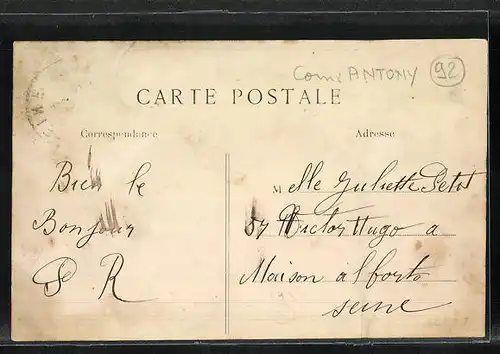 Com. ANTONY 92
CARTE POSTALE
Correspondance
Adresse
Bien le
Bonjour
P R
Melle Juliette Petit
57 Victor Hugo a
Maison alfort
seine